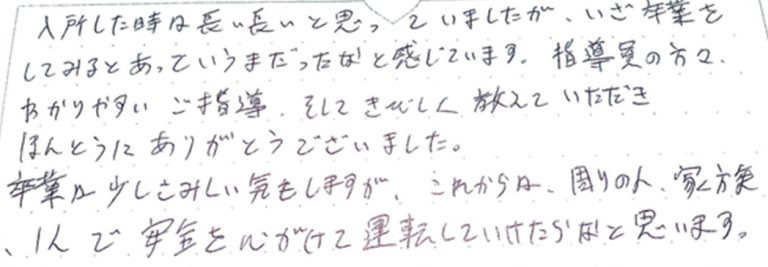 入所した時は長い長いと思っていましたが、いざ卒業を
してみるとあっというまだったなと感じています。指導員の方々、
わかりやすいご指導、そしてきびしく教えていただき
ほんとうにありがとうございました。
卒業は少しさみしい気もしますが、これからは、周りの人、家族
、1人で安全を心がけて運転していけたらなと思います。